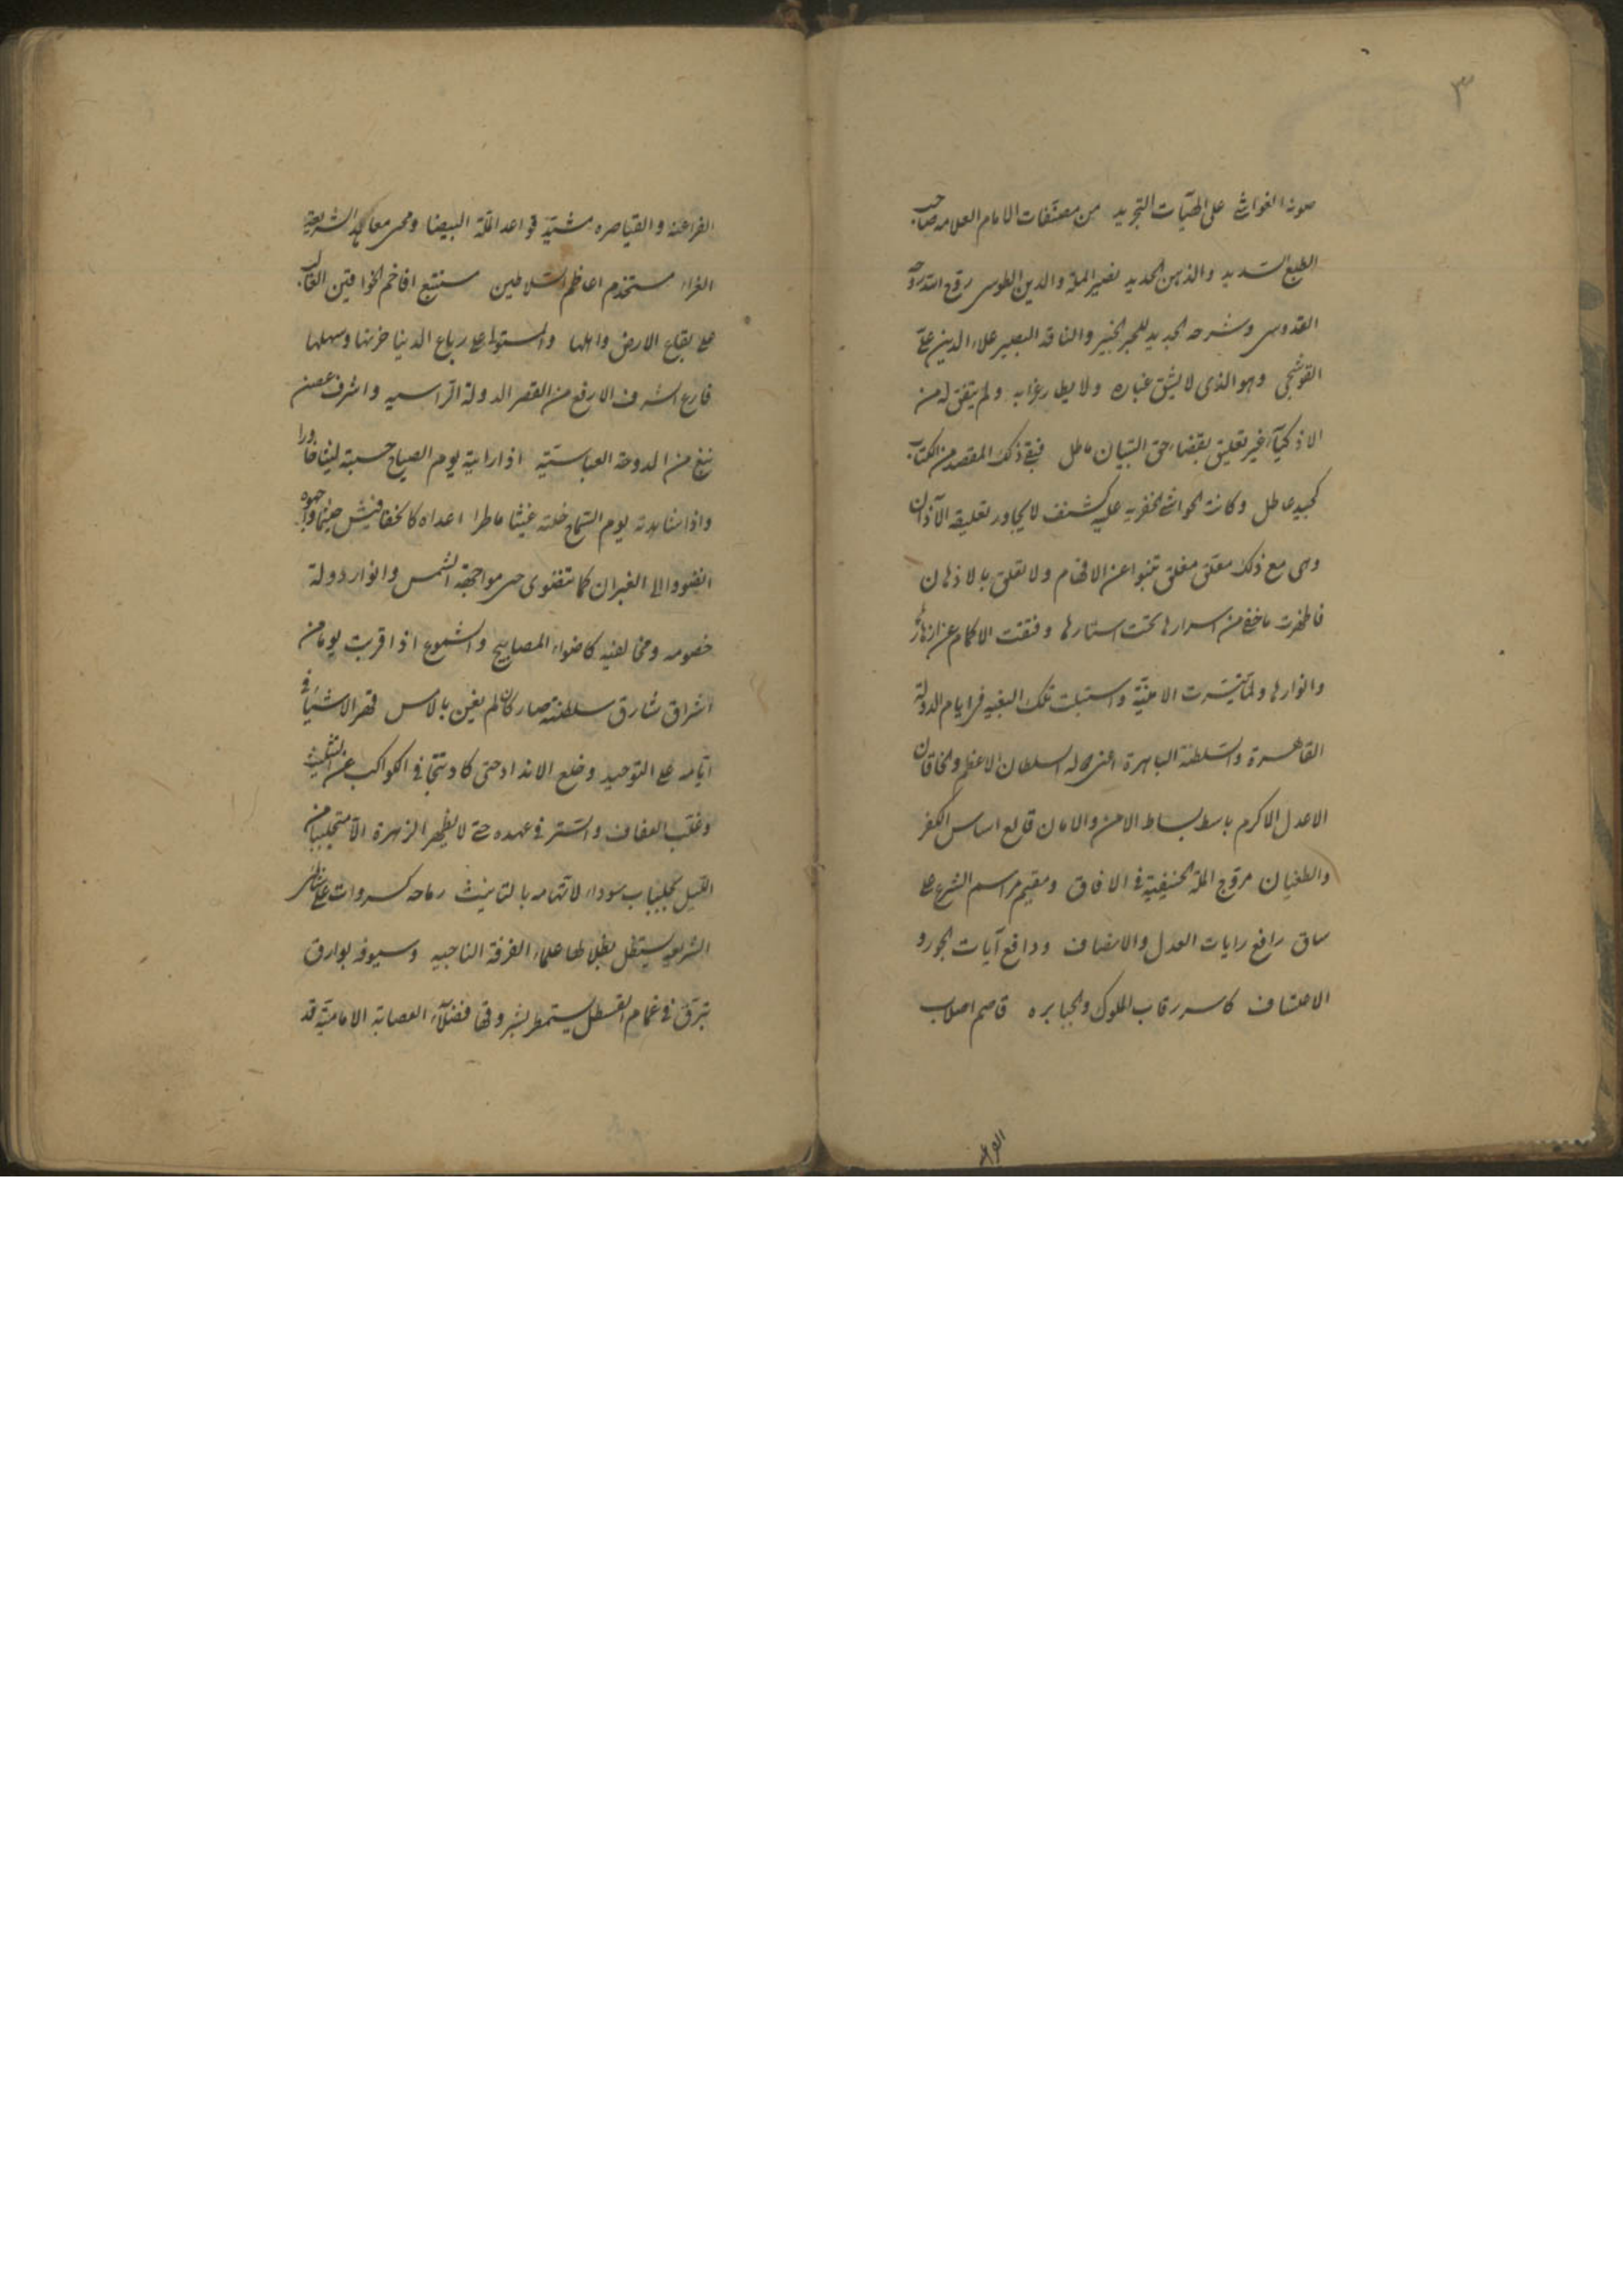 ٣
صونه الغواشى على الهيّات التجريد من مصنّفات الامام العلامه صاحب
الطبع السديد والذهن الحديد نصير الملة والدين الطوسى روّح الله روحه
القدوسى وشرحه الجديد للحبر الخبير والناقد البصير علاء الدين علىّ
القوشجى وهو الذى لا يشق غباره ولا يطار غرابه ولم يتفق له من
الاذكيآء غير تعليق بقضاء حق التبيان ماطل فبقى ذلك المقصد من الكتاب
كجيد عاطل وكانت الحواشى الخفريه عليه كشنف لا يجاور تعليقه الآذان
وهى مع ذلك معلق مغلق تنبوا عن الافهام ولا تعلق بالاذهان
فاظهرت ما خفى من اسرارها تحت استارها وفتقت الاكمام عن ازهارها
وانوارها ولمّا تيسّرت الامنيّة واستتبت تلك البغيه فى ايام الدولة
القاهرة والسلطنة الباهرة اعنى السلطان الاعظم والخاقان
الاعدل الاكرم باسط بساط الامن والامان قالع اساس الكفر
والطغيان مروّج الملة الحنيفية فى الافاق ومقيم مراسم الشرع على
ساق رافع رايات العدل والانصاف ودافع آيات الجور و
الاعتساف كاسر رقاب الملوك والجبابره قاصم اصلاب
الفراعنه
الفراعنه والقياصره مشيّد قواعد الملّة البيضا ومحيى معاهد الشريعة
الغراء مستخدم اعاظم السلاطين مستتبع افاخم الخواقين الغالب
على بقاع الارض واهلها والمستولى على رباع الدنيا حزنها وسهلها
فارع الشرف الارفع من القصر الدولة الراسيه واشرف غصن
نبغ من الدوحة العباسيّة اذا رايته يوم الصياح حسبته ليثا خادرا
واذا شاهدته يوم السماح خلته غيثا ماطرا اعداه كالخفافيش حيثما واجهوه
انضووا الى الغيران كما تنضوى من مواجهة الشمس وانوار دولة
خصومه ومخالفيه كاضواء المصابيح والشموع اذا قربت يوما من
اشراق شارق سلطنته صار كان لم يغن بالامس قهر الاشيآء فى
ايّامه على التوحيد وخلع الانداد حتى كاد تتجافى الكواكب عن التثليث
وغلب العفاف والتستر فى عهده حتى لا يظهر الزهرة الّا متجلببا من
الليل بجلباب سوداء لاتهامه بالتانيث رماحه كسروات على شاطئ
الشريعة يستظل بظلالها علماء الفرقة الناجيه وسيوفه بوارق
تبرق فى غمام القسطل يستمطر بشروقها فضلآء العصابة الاماميّة قد